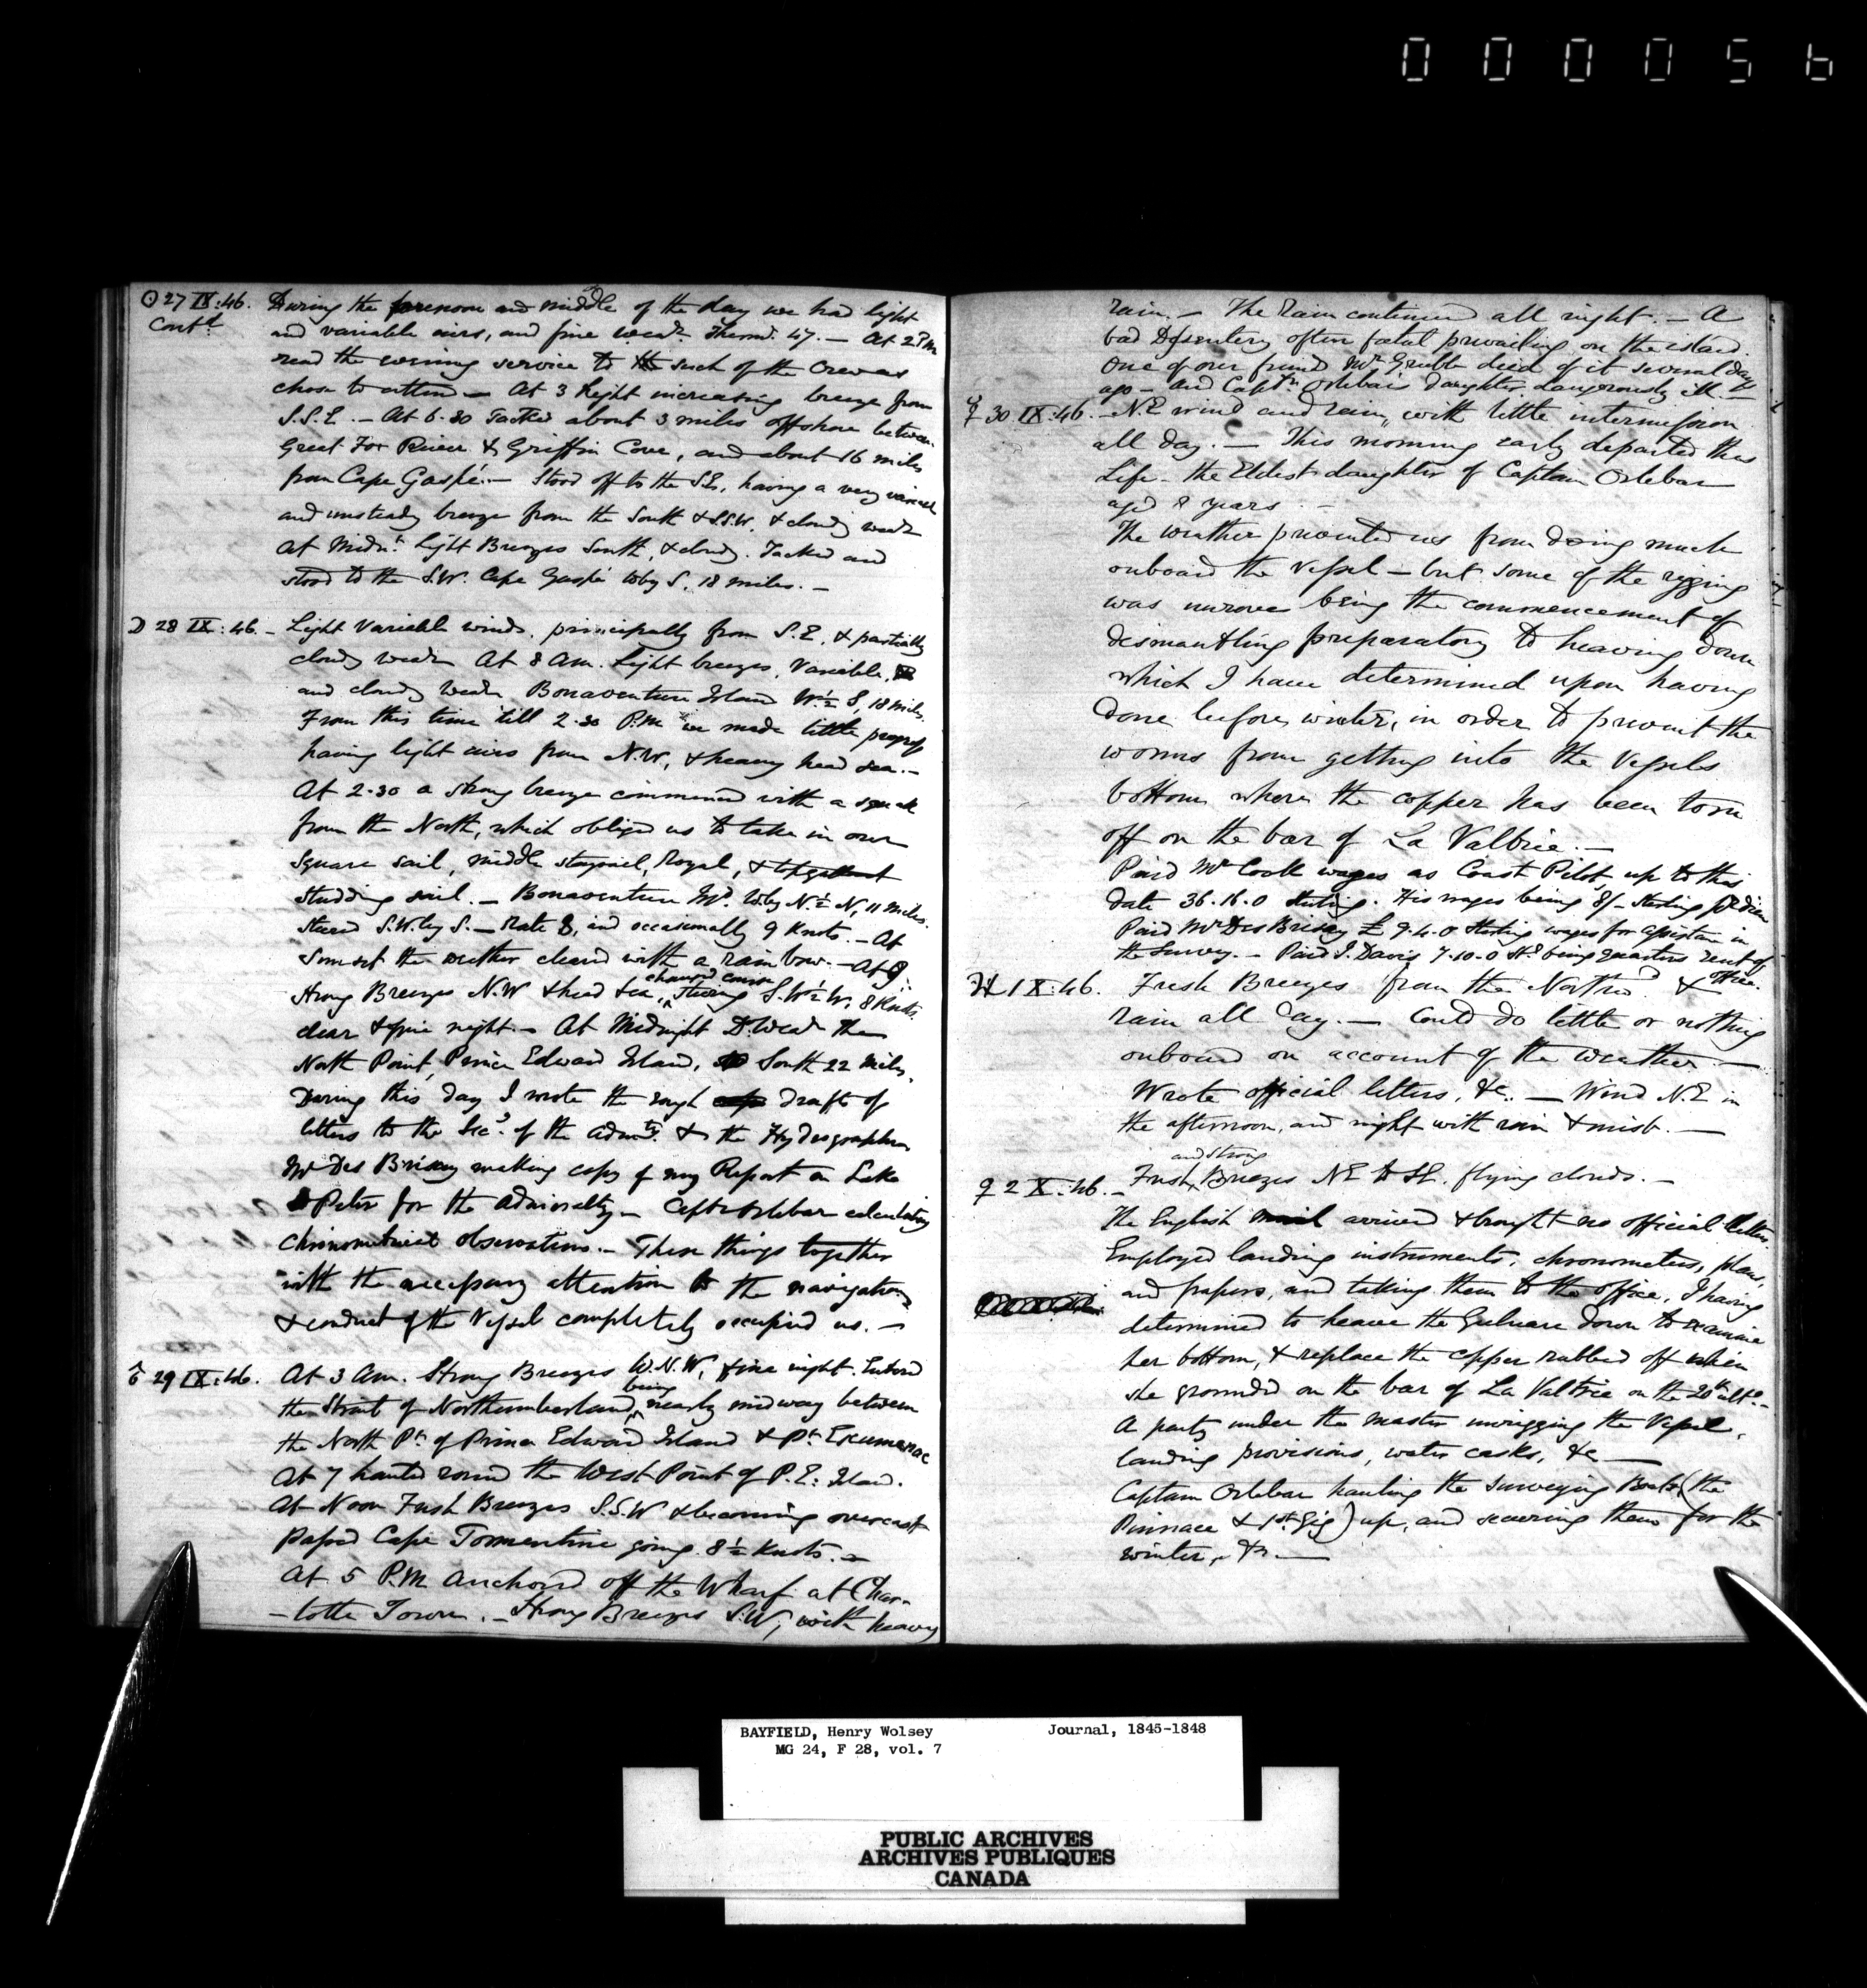 000056
☉ 27 IX:46. During the forenoon and middle of the day we had light
Contd and variable airs, and fine wear. Thermr. 47. — At 2 PM
read the evening service to such of the Crew as
chose to attend — At 3 light increasing breeze from
S.S.E. — At 6.30 Tacked about 3 miles offshore between
Great Fox River & Griffin Cove, and about 16 miles
from Cape Gaspé. — Stood off to the SE, having a very variable
and unsteady breeze from the South & S.S.W. & cloudy wear
At Midnt. Light Breezes South, & cloudy. Tacked and
stood to the S.W. Cape Gaspé W by S. 18 miles. —
☽ 28 IX:46. — Light Variable winds, principally from S.E. & partially
cloudy wear At 8 Am. Light breezes, Variable,
and cloudy wear Bonaventure Island W½S, 18 miles.
From this time 'till 2.30 P.M we made little progress
having light airs from N.W, & heavy head sea. —
At 2.30 a strong breeze commenced with a squall
from the North, which obliged us to take in our
square sail, middle staysail, Royal, & topgallant
studding sail. — Bonaventure Id. W by N½N, 11 miles.
Steered S.W. by S. — Rate 8, and occasionally 9 Knots. — At
Sunset the weather cleared with a rainbow. — At 9,
changed course
Strong Breezes N.W & head sea, steering S.W½W. 8 Knots.
clear & fine night. — At Midnight D. Wear the
North Point, Prince Edward Island, South 22 miles.
During this day I wrote the rough drafts of
letters to the Secy. of the Admty. & to the Hydrographer
Mr Des Brisay making copy of my Report on Lake
St Peter for the Admiralty — Captn Orlebar calculating
Chronometrical observations. — These things together
with the necessary attention to the navigation
& conduct of the Vessel completely occupied us. —
♂ 29 IX:46. At 3 Am. Strong Breezes W.N.W, & fine night. Entered
being
the Strait of Northumberland, nearly midway between
the North Pt. of Prince Edward Island & Pt. Escumenac
At 7 hauled round the West Point of P.E. Island.
At Noon Fresh Breezes S.S.W & becoming overcast
passed Cape Tormentine going 8½ Knots. —
At 5 P.M anchored off the Wharf at Char-
-lotte Town. — Strong Breezes S.W, with heavy
rain. — The Rain continued all night. — A
bad Dysentery often fatal prevailing on the island.
One of our friends Mr Grubb died of it several days
ago — and Captn Orlebar's daughter dangerously ill. —
☿ 30 IX:46. — N.E wind and rain, with little intermission
all day. — This morning early departed this
Life — the Eldest daughter of Captain Orlebar
aged 8 years. —
The weather prevented us from doing much
onboard the vessel — but some of the rigging
was unrove being the commencement of
dismantling preparatory to heaving down
which I have determined upon having
done before winter, in order to prevent the
worms from getting into the Vessels
bottom where the copper has been torn
off on the bar of La Valtrie. —
Paid Mr Cook wages as Coast Pilot up to this
date 36.16.0 sterling. His wages being 8/- sterling pr diem
Paid Mr Des Brisay £ 9.4.0 sterling wages for assistance in
the Survey. — Paid J. Davis 7.10.0 Stg being quarters rent of
office.
♃ 1 X:46. Fresh Breezes from the Northwd. &
rain all day. — Could do little or nothing
onboard on account of the weather —
Wrote official letters, &c. — Wind N.E in
the afternoon, and night with rain & mist. —
and strong
♀ 2 X:46. — Fresh, Breezes NE to SE. flying clouds. —
The English mail arrived & brought no official letters.
Employed landing instruments, chronometers, plans,
and papers, and taking them to the office. I having
determined to heave the Gulnare down to examine
her bottom, & replace the copper rubbed off when
she grounded on the bar of La Valtrie on the 20th ulto. —
A party under the Master unrigging the Vessel,
landing provisions, water casks, &c —
Captain Orlebar hauling the Surveying Boats (the
Pinnace & 1st Gig) up, and securing them for the
winter, &c. —
BAYFIELD, Henry Wolsey Journal, 1845-1848
MG 24, F 28, vol. 7
PUBLIC ARCHIVES
ARCHIVES PUBLIQUES
CANADA